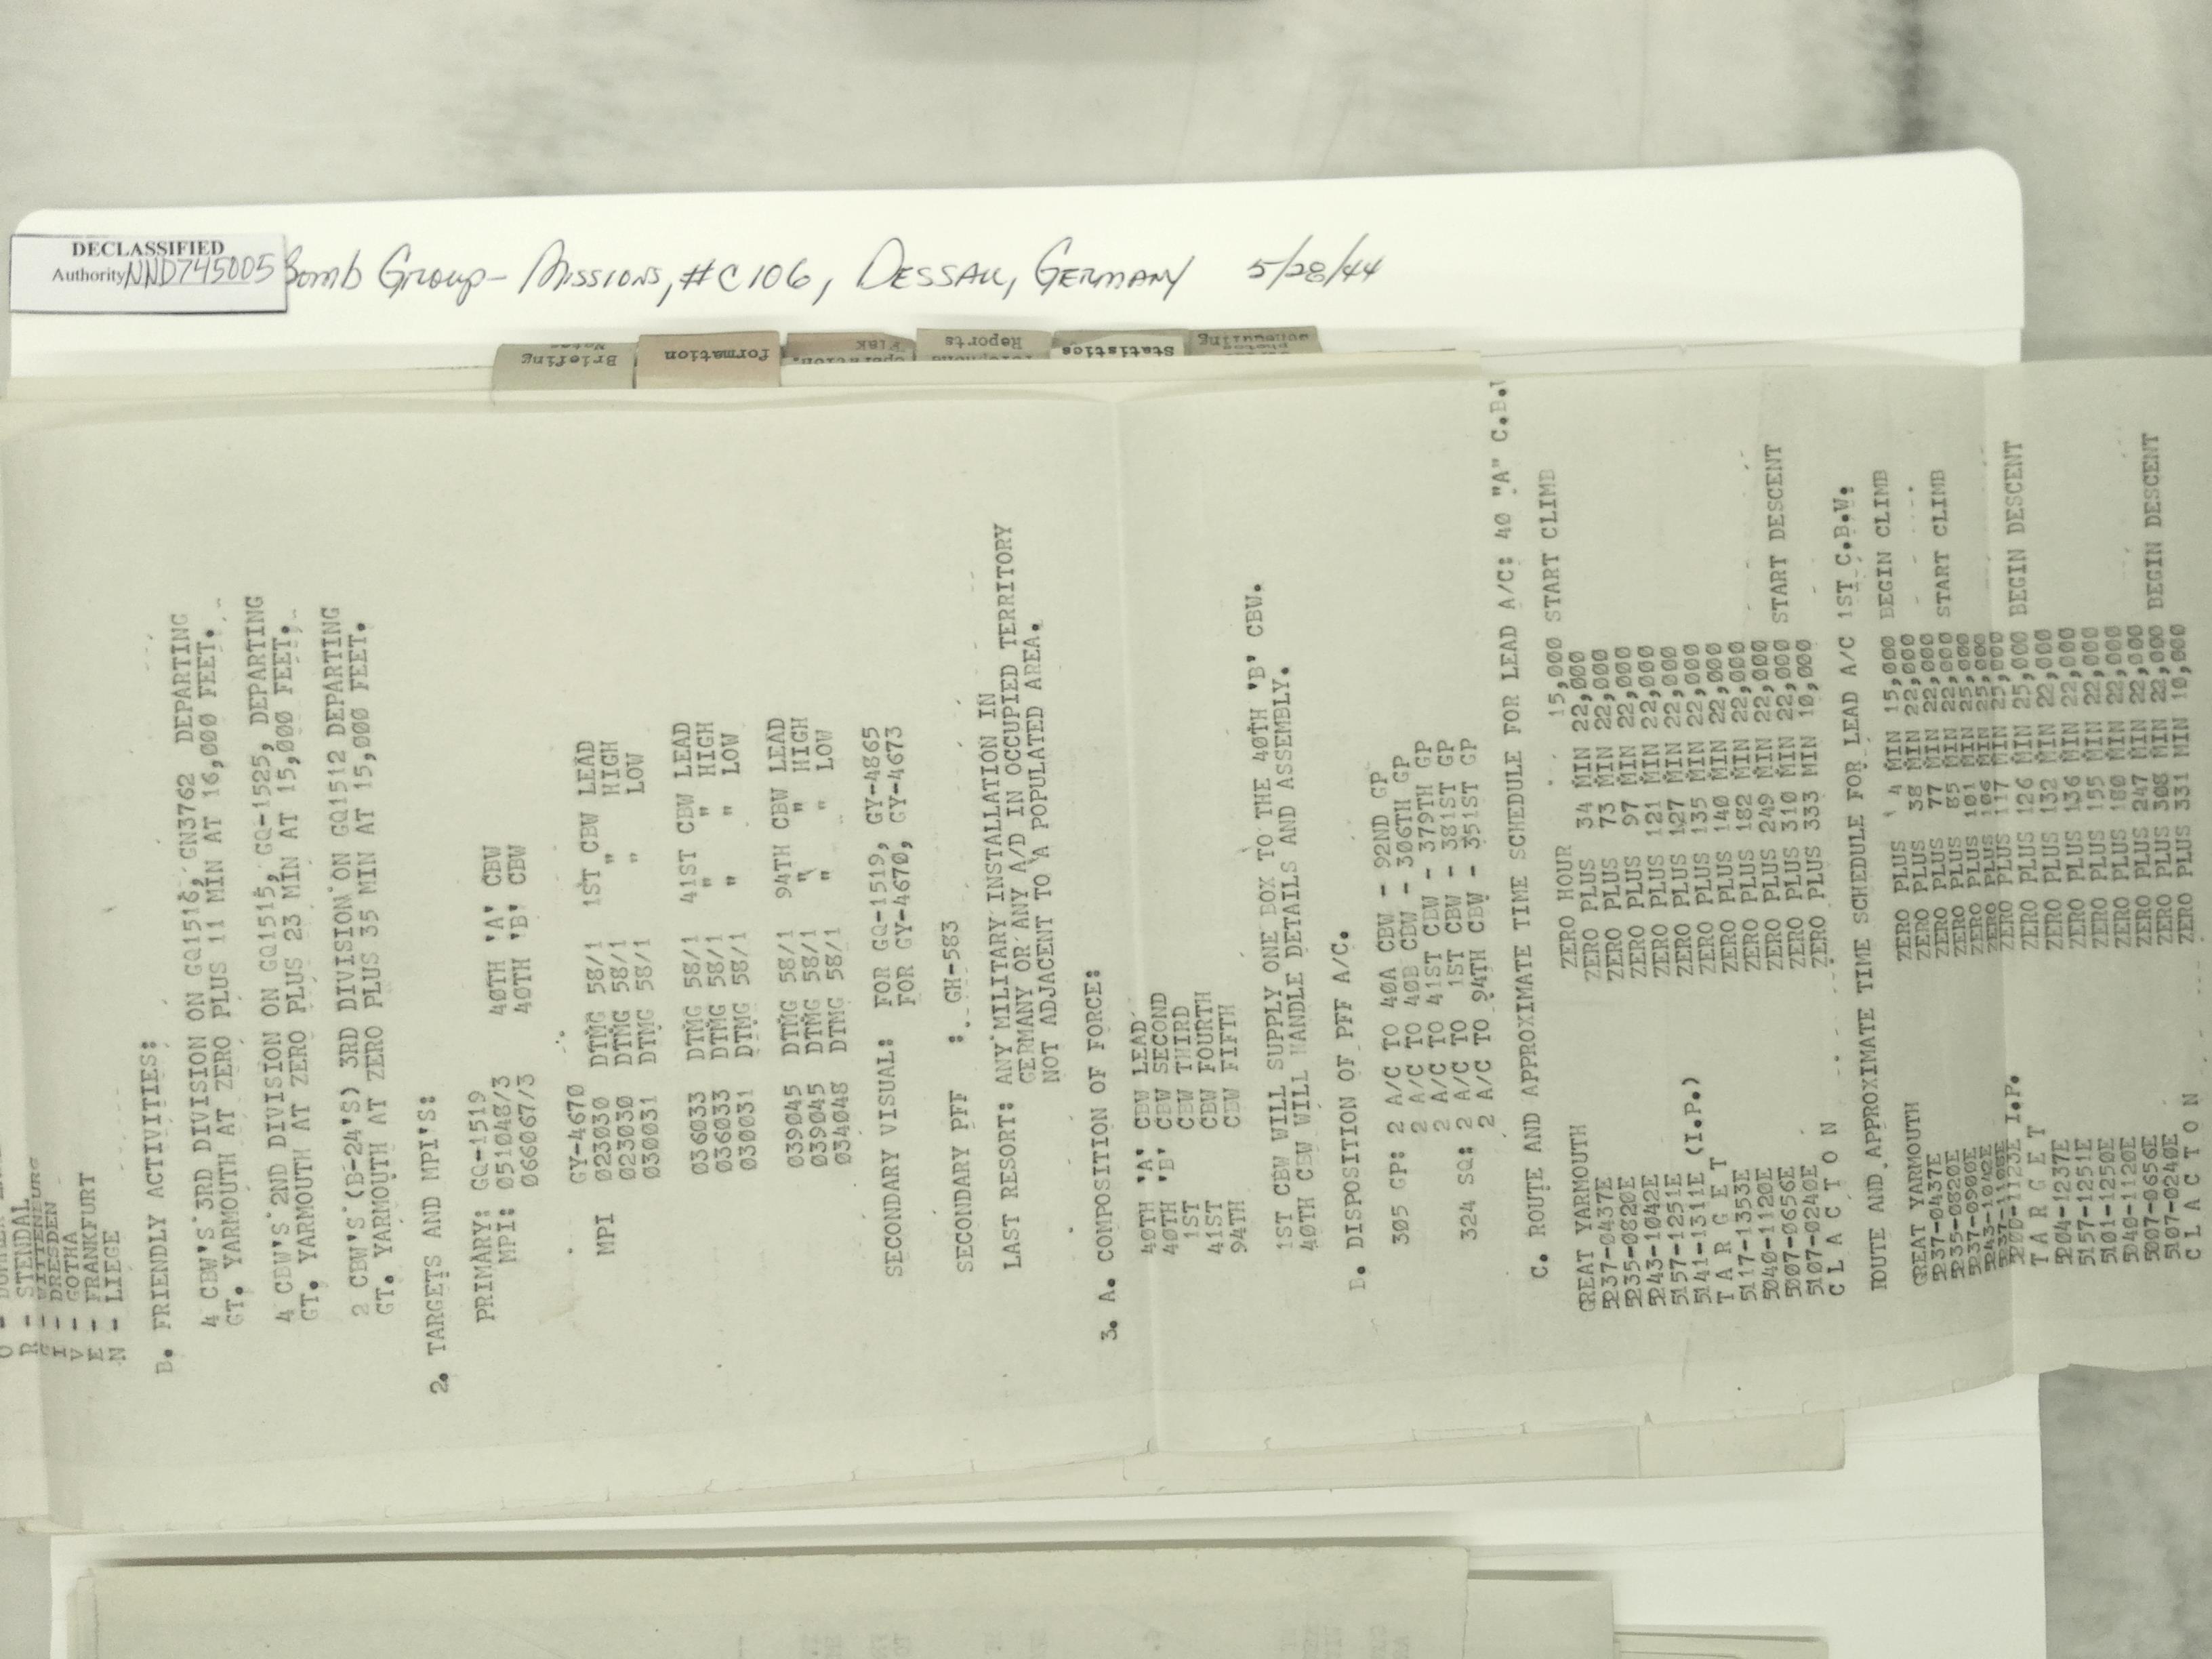 DECLASSIFIED
Authority NND745005
Bomb Group - Missions, #C106, Dessau, Germany 5/28/44
Briefing
formation
Flak
Reports
Statistics
Scheduling
R - STENDAL
G - WITTENBURG
I - DRESDEN
V - GOTHA
E - FRANKFURT
N - LIEGE
B. FRIENDLY ACTIVITIES:
4 CBW'S 3RD DIVISION ON GQ1516, GN3762 DEPARTING
GT. YARMOUTH AT ZERO PLUS 11 MIN AT 16,000 FEET.
4 CBW'S 2ND DIVISION ON GQ1515, GQ-1525, DEPARTING
GT. YARMOUTH AT ZERO PLUS 23 MIN AT 15,000 FEET.
2 CBW'S (B-24'S) 3RD DIVISION ON GQ1512 DEPARTING
GT. YARMOUTH AT ZERO PLUS 35 MIN AT 15,000 FEET.
2. TARGETS AND MPI'S:
PRIMARY: GQ-1519
MPI: 051048/3 40TH 'A' CBW
066067/3 40TH 'B' CBW
GY-4670
MPI 023030 DTMG 58/1 1ST CBW LEAD
023030 DTMG 58/1 " HIGH
030031 DTMG 58/1 " LOW
036033 DTMG 58/1 41ST CBW LEAD
036033 DTMG 58/1 " " HIGH
030031 DTMG 58/1 " " LOW
039045 DTMG 58/1 94TH CBW LEAD
039045 DTMG 58/1 " " HIGH
034048 DTMG 58/1 " " LOW
SECONDARY VISUAL: FOR GQ-1519, GY-4865
FOR GY-4670, GY-4673
SECONDARY PFF : GH-583
LAST RESORT: ANY MILITARY INSTALLATION IN
GERMANY OR ANY A/D IN OCCUPIED TERRITORY
NOT ADJACENT TO A POPULATED AREA.
3. A. COMPOSITION OF FORCE:
40TH 'A' CBW LEAD
40TH 'B' CBW SECOND
1ST CBW THIRD
41ST CBW FOURTH
94TH CBW FIFTH
1ST CBW WILL SUPPLY ONE BOX TO THE 40TH 'B' CBW.
40TH CBW WILL HANDLE DETAILS AND ASSEMBLY.
B. DISPOSITION OF PFF A/C.
305 GP: 2 A/C TO 40A CBW - 92ND GP
2 A/C TO 40B CBW - 306TH GP
2 A/C TO 41ST CBW - 379TH GP
324 SQ: 2 A/C TO 1ST CBW - 381ST GP
2 A/C TO 94TH CBW - 351ST GP
C. ROUTE AND APPROXIMATE TIME SCHEDULE FOR LEAD A/C: 40 "A" C.B.W
GREAT YARMOUTH ZERO HOUR 15,000 START CLIMB
5237-0437E ZERO PLUS 34 MIN 22,000
5235-0820E ZERO PLUS 73 MIN 22,000
5243-1042E ZERO PLUS 97 MIN 22,000
5157-1251E ZERO PLUS 121 MIN 22,000
5141-1311E (I.P.) ZERO PLUS 127 MIN 22,000
T A R G E T ZERO PLUS 135 MIN 22,000
5117-1353E ZERO PLUS 140 MIN 22,000
5040-1120E ZERO PLUS 182 MIN 22,000
5007-0656E ZERO PLUS 249 MIN 22,000
5107-0240E ZERO PLUS 310 MIN 22,000 START DESCENT
C L A C T O N ZERO PLUS 333 MIN 10,000
ROUTE AND APPROXIMATE TIME SCHEDULE FOR LEAD A/C 1ST C.B.W.
GREAT YARMOUTH ZERO PLUS 4 MIN 15,000 BEGIN CLIMB
5237-0437E ZERO PLUS 38 MIN 22,000
5235-0820E ZERO PLUS 77 MIN 22,000
5237-0909E ZERO PLUS 85 MIN 22,000 START CLIMB
5243-1042E ZERO PLUS 101 MIN 25,000
ZERO PLUS 106 MIN 25,000
I.P. ZERO PLUS 117 MIN 25,000
T A R G E T ZERO PLUS 126 MIN 25,000 BEGIN DESCENT
5204-1237E ZERO PLUS 132 MIN 22,000
5157-1251E ZERO PLUS 136 MIN 22,000
5101-1250E ZERO PLUS 155 MIN 22,000
5040-1120E ZERO PLUS 180 MIN 22,000
5007-0656E ZERO PLUS 247 MIN 22,000
5107-0240E ZERO PLUS 308 MIN 22,000 BEGIN DESCENT
C L A C T O N ZERO PLUS 331 MIN 10,000